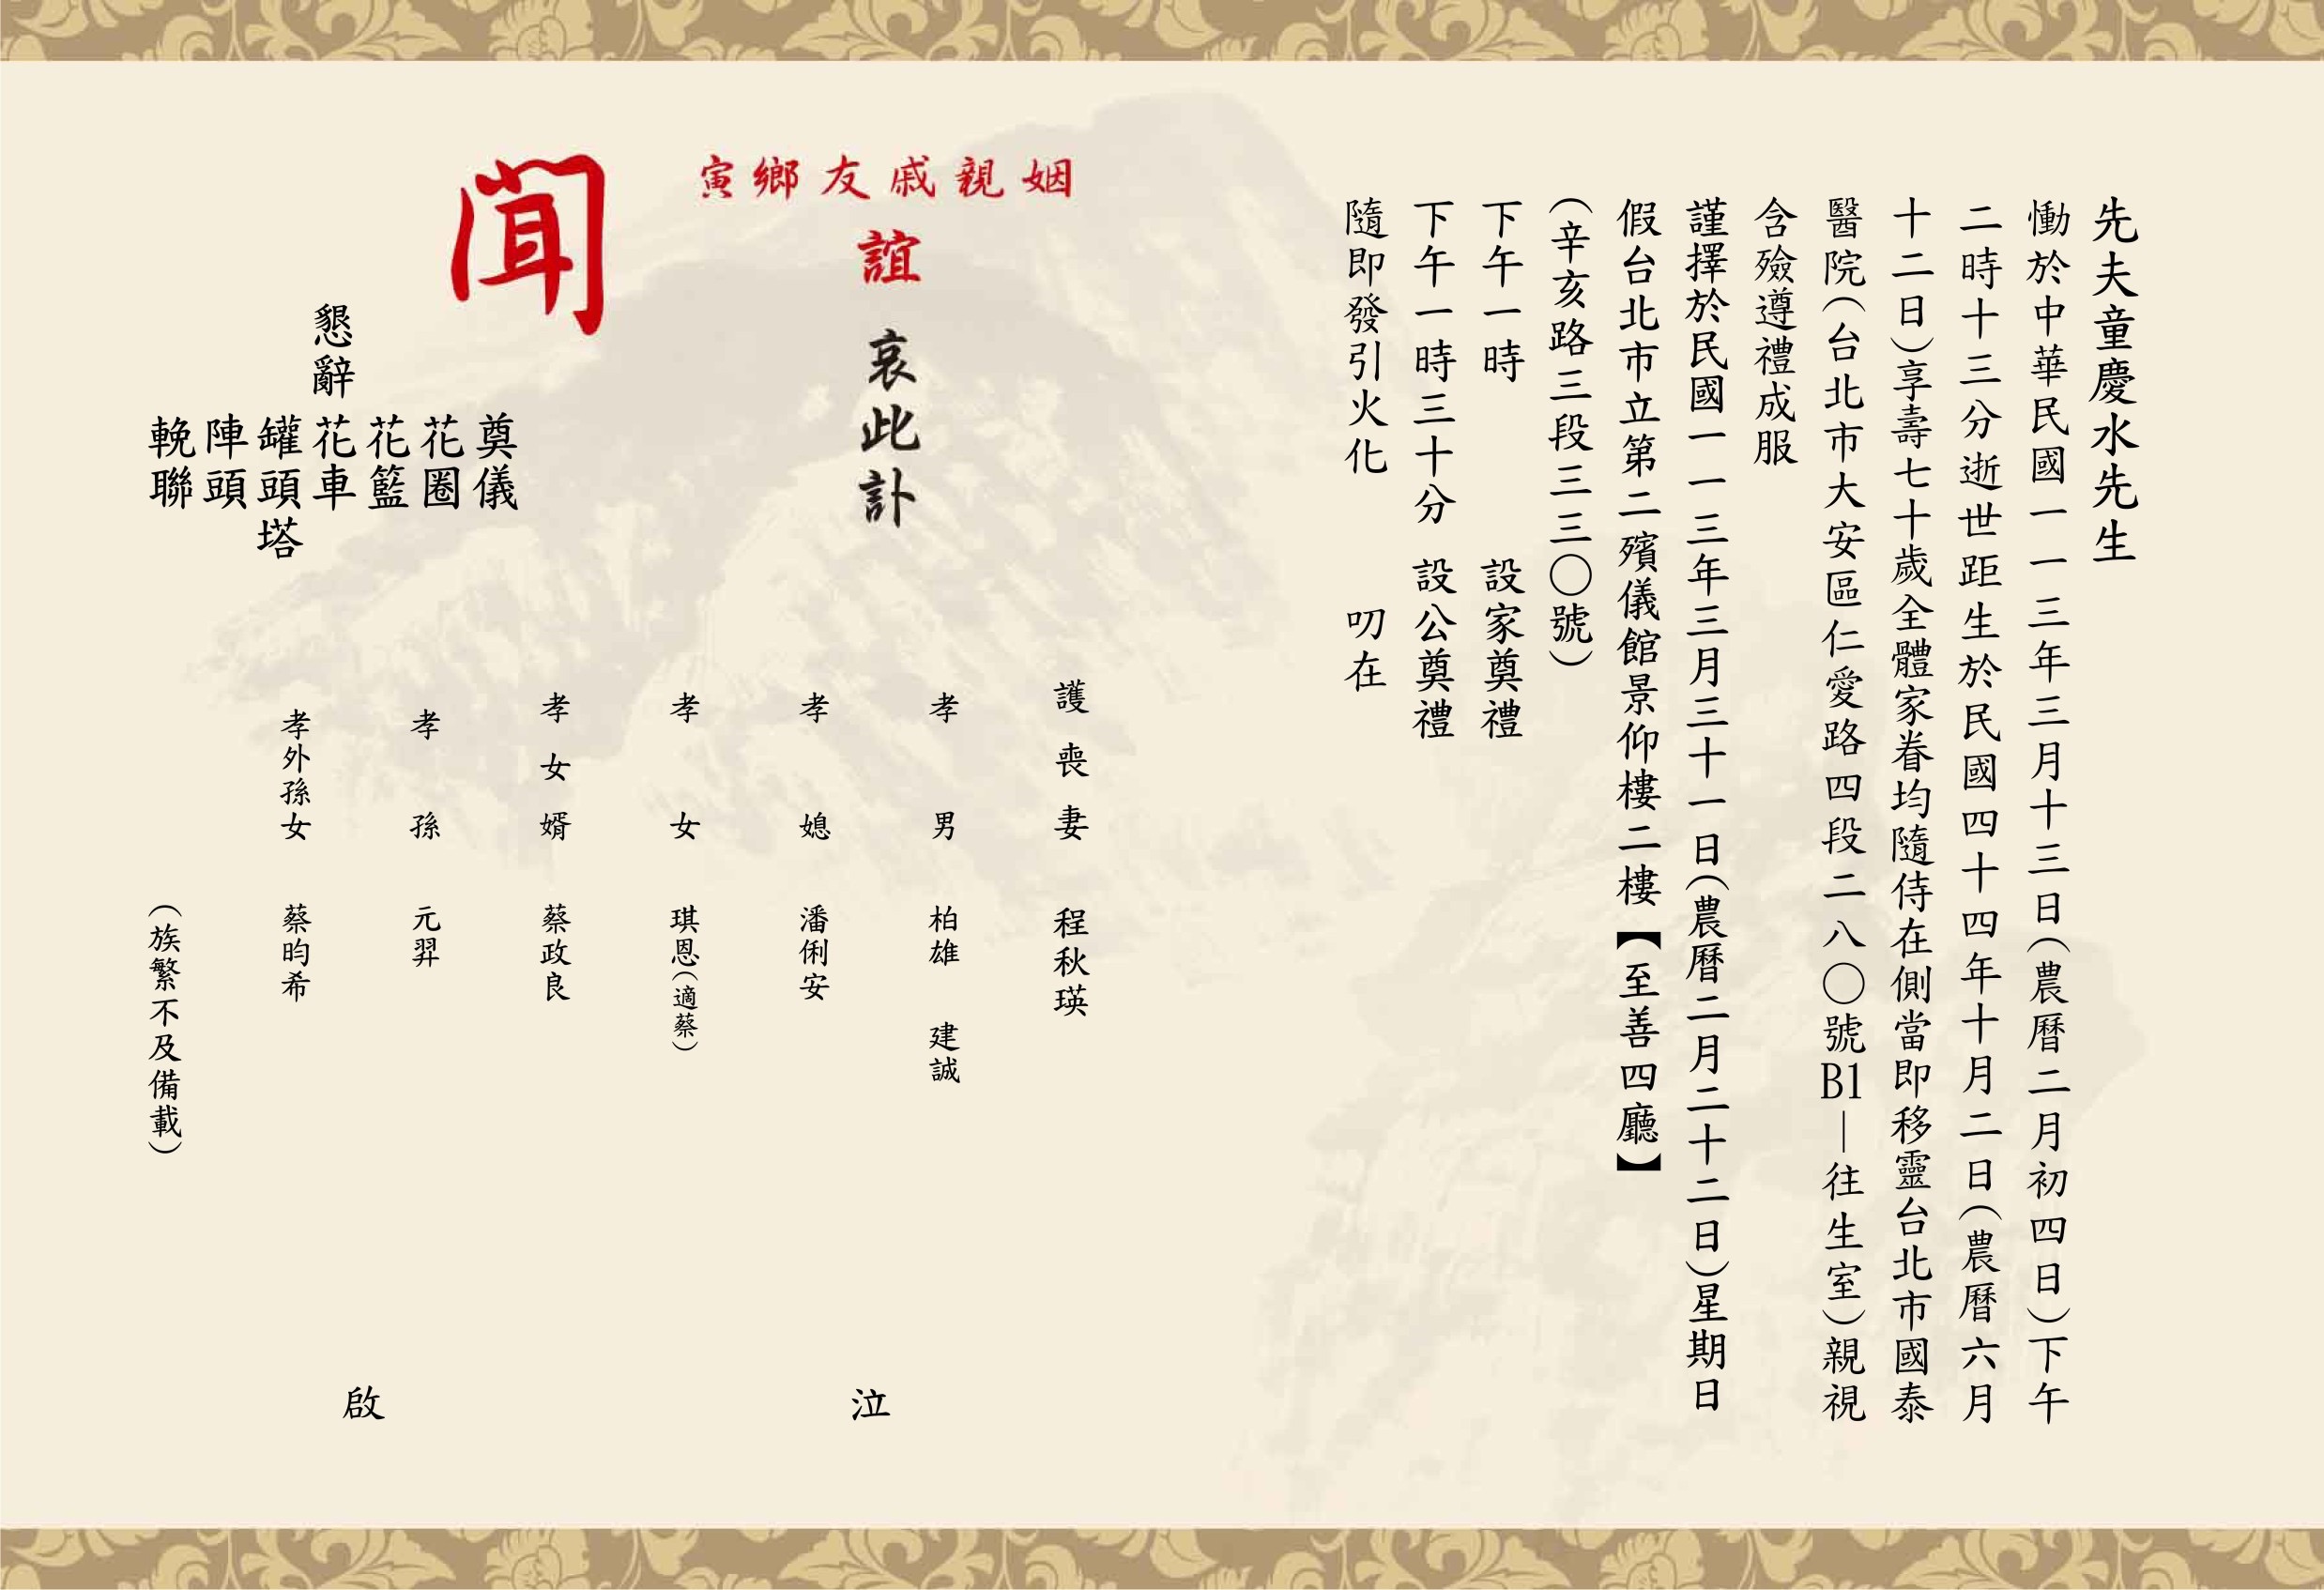 先夫童慶水先生
慟於中華民國一一三年三月十三日(農曆二月初四日)下午
二時十三分逝世距生於民國四十四年十月二日(農曆六月
十二日)享壽七十歲全體家眷均隨侍在側當即移靈台北市國泰
醫院(台北市大安區仁愛路四段二八〇號B1—往生室)親視
含殮遵禮成服
謹擇於民國一一三年三月三十一日(農曆二月二十二日)星期日
假台北市立第二殯儀館景仰樓二樓【至善四廳】
(辛亥路三段三三〇號)
下午一時 設家奠禮
下午一時三十分 設公奠禮
隨即發引火化 叨在
姻親戚友鄉寅
誼
哀此訃
聞
護喪妻 程秋瑛
孝男 柏雄 建誠
孝媳 潘俐安
孝女 琪恩(適蔡)
孝女婿 蔡政良
孝孫 元羿
孝外孫女 蔡昀希
(族繁不及備載)
泣
啟
懇辭
奠儀
花圈
花籃
花車
罐頭塔
陣頭
輓聯